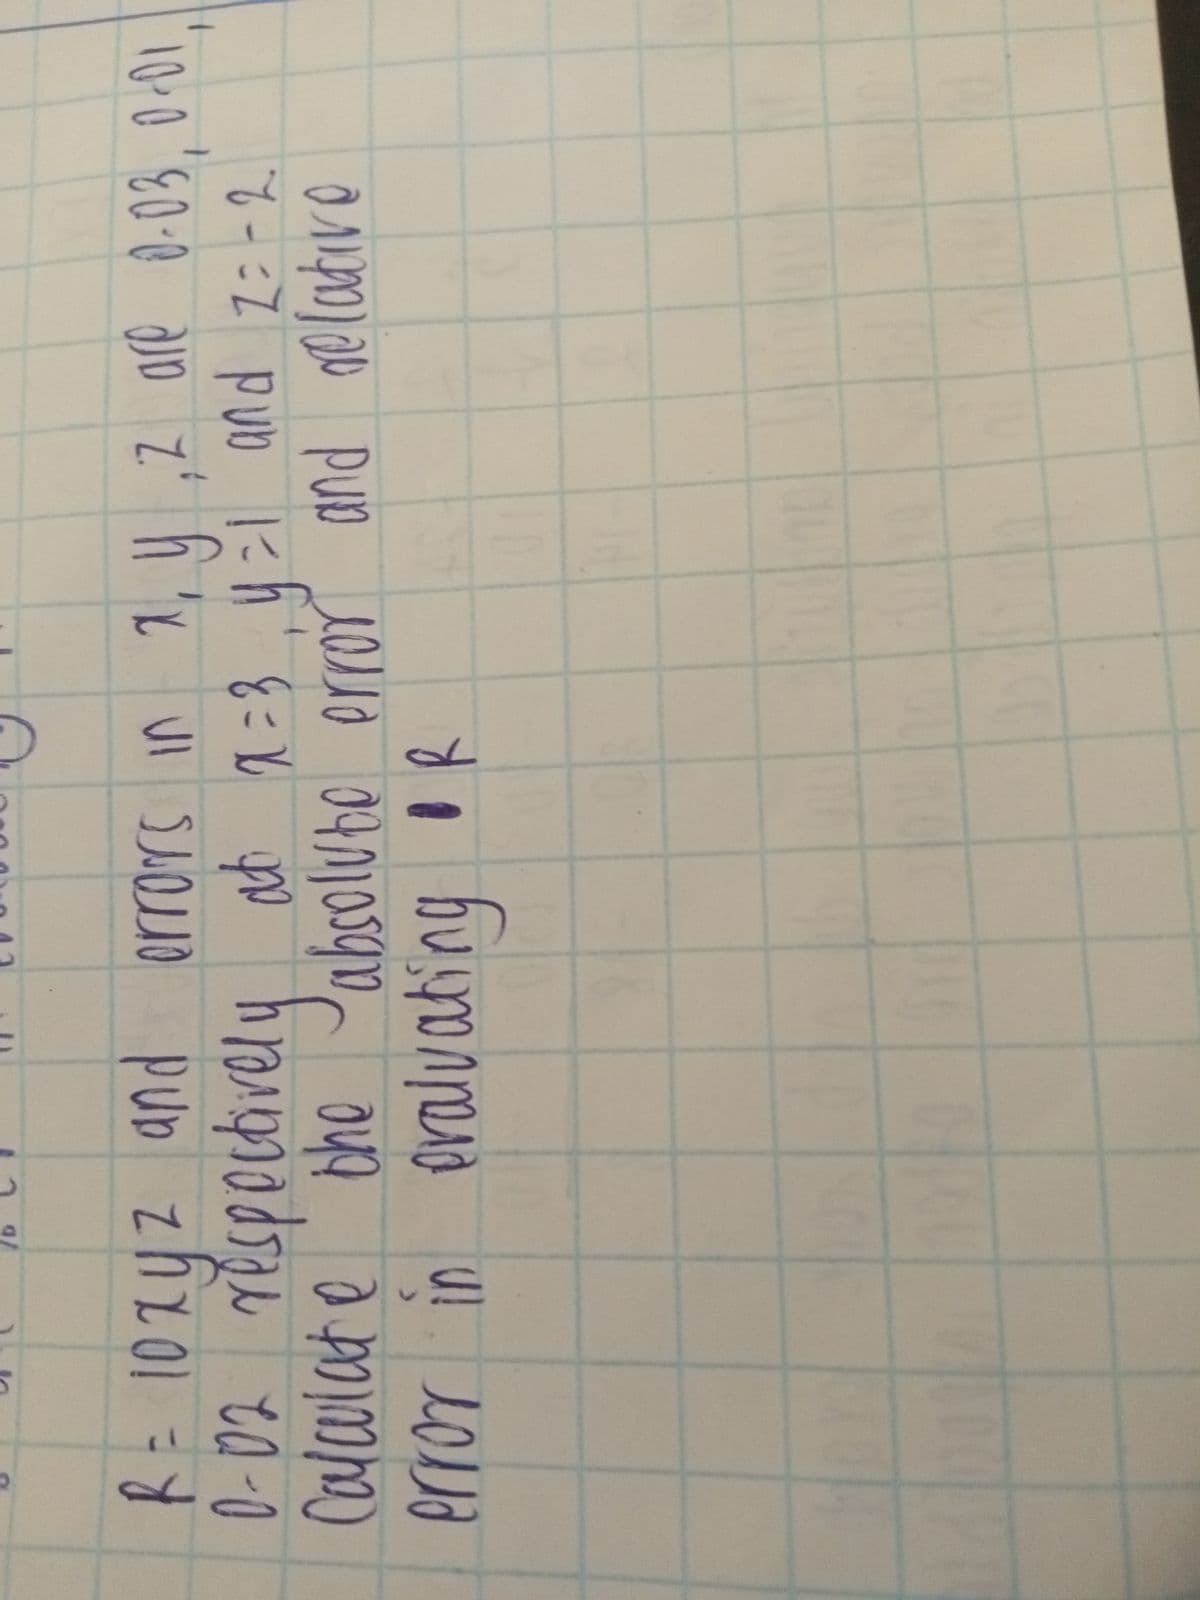 R = 10xyz and errors in x, y, z are 0.03, 0.01,
0.02 respectively at x=3, y=1 and z=-2.
Calculate the absolute error and relative
error in evaluating R